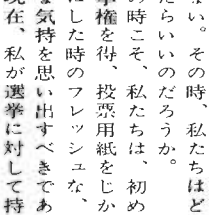 ない。その時、私たちはど
たらいいのだろうか。
の時こそ、私たちは、初め
権を得、投票用紙をじか
にした時のフレッシュな、
な気持を思い出すべきであ
現在、私が選挙に対して持